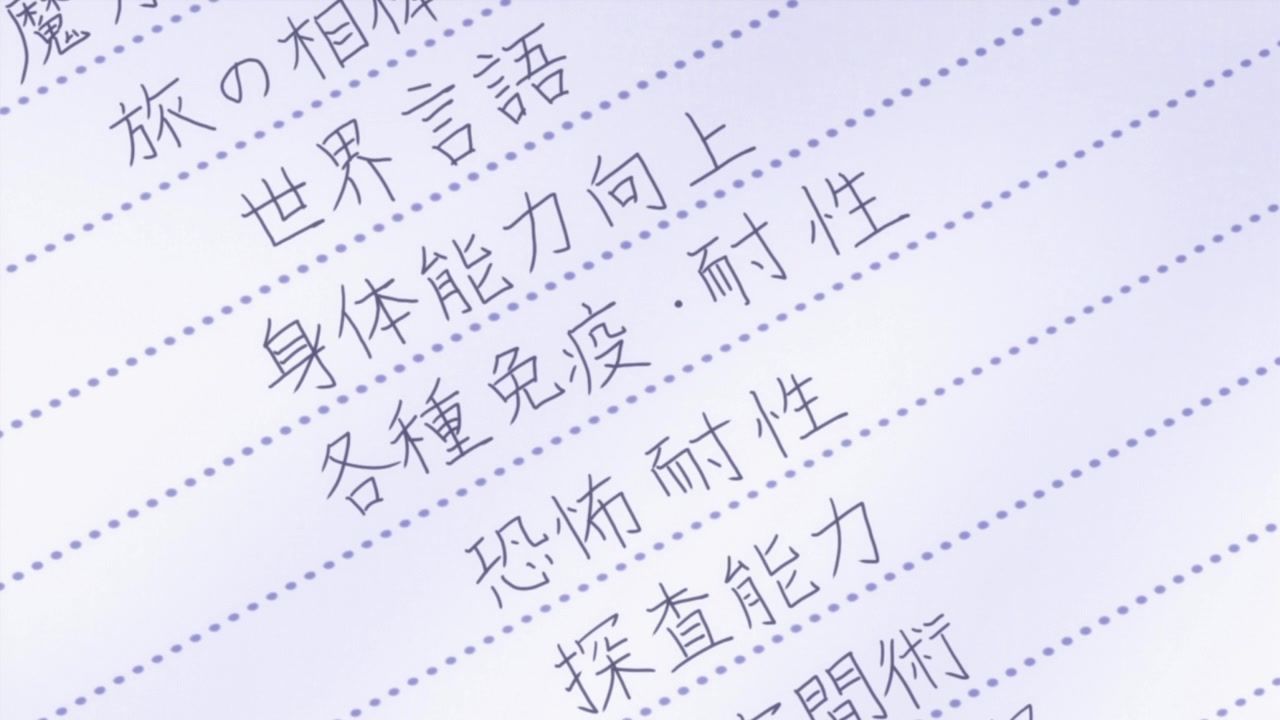 魔
旅の相
世界言語
身体能力向上
各種免疫・耐性
恐怖耐性
探査能力
間術